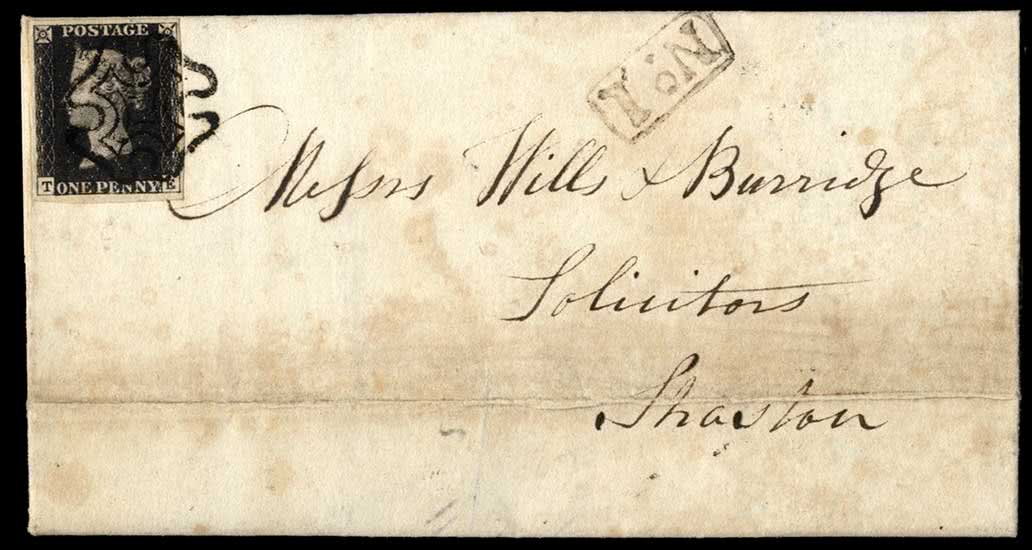 POSTAGE
T ONE PENNY E
No. 1
Messrs Wills & Burridge
Solicitors
Shaston